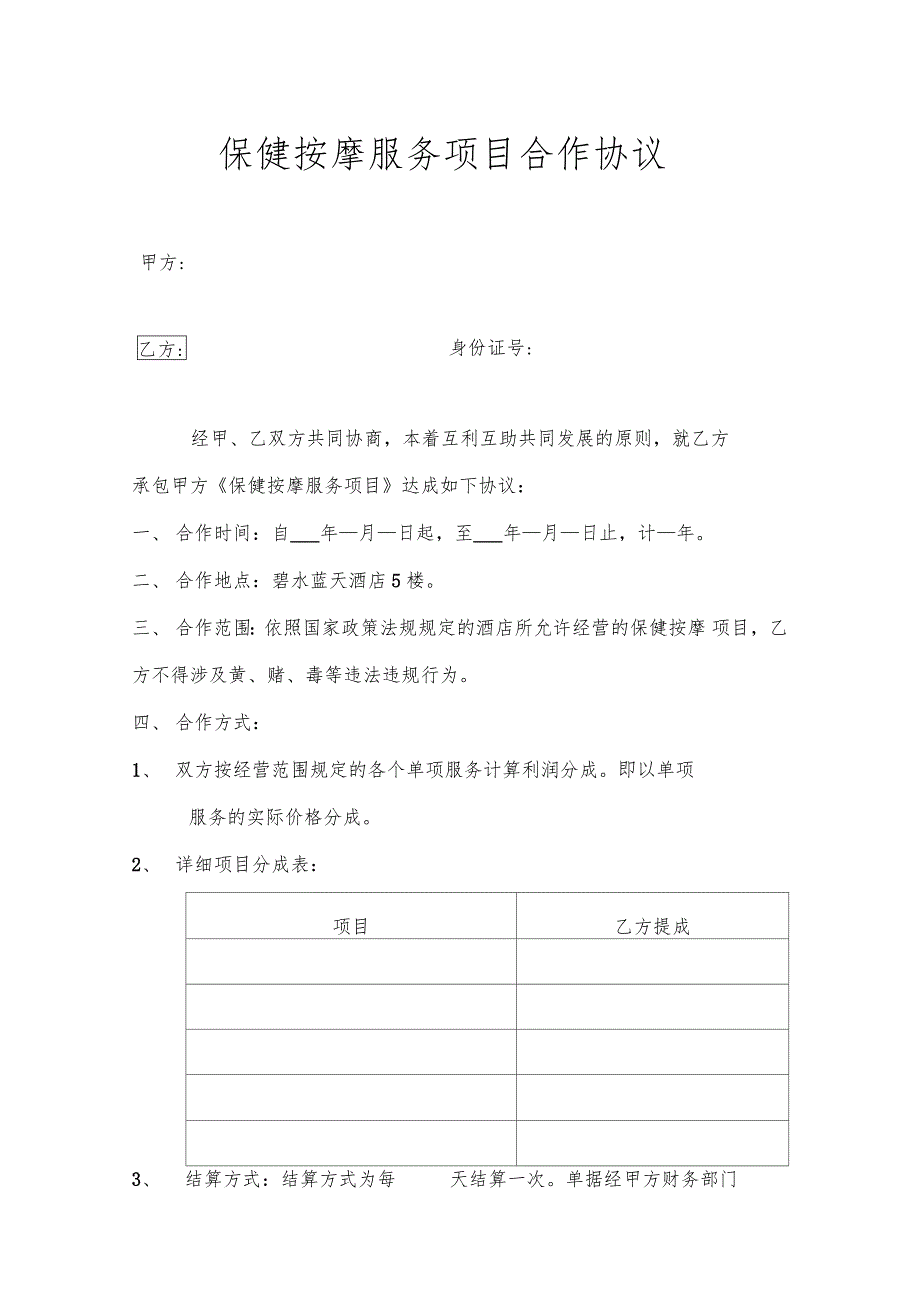 保健按摩服务项目合作协议
甲方:
乙方: 身份证号:
经甲、乙双方共同协商，本着互利互助共同发展的原则，就乙方
承包甲方《保健按摩服务项目》达成如下协议:
一、 合作时间: 自___年—月—日起，至___年—月—日止，计—年。
二、 合作地点: 碧水蓝天酒店 5 楼。
三、 合作范围: 依照国家政策法规规定的酒店所允许经营的保健按摩 项目，乙
方不得涉及黄、赌、毒等违法违规行为。
四、 合作方式:
1、 双方按经营范围规定的各个单项服务计算利润分成。即以单项
服务的实际价格分成。
2、 详细项目分成表:
项目 乙方提成
3、 结算方式: 结算方式为每 天结算一次。单据经甲方财务部门